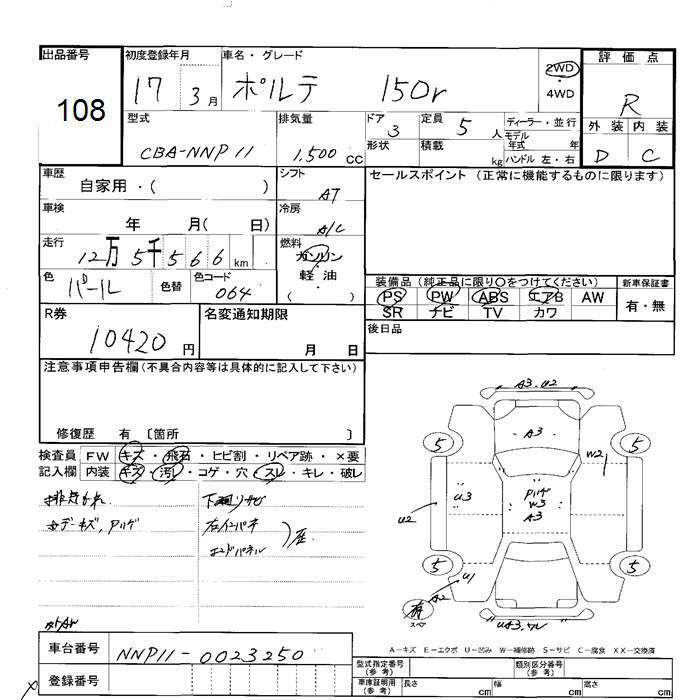 出品番号
108
初度登録年月
17 3月
車名・グレード
ポルテ 150r
2WD
・
4WD
評価点
R
型式
CBA-NNP11
排気量
1,500 CC
ドア
3
形状
定員
5 人
積載
kg
ディーラー・並行
モデル
年式 年
ハンドル 左・右
外装 内装
D C
車歴
自家用・( )
シフト
AT
車検
年 月( 日)
冷房
A/C
走行
12万5千566 km
燃料
ガソリン
・
軽油
( )
色
パール
色替
色コード
064
セールスポイント (正常に機能するものに限ります)
装備品 (純正品に限り〇をつけてください)
PS PW ABS エアB AW
SR ナビ TV カワ
新車保証書
有・無
R券
10420 円
名変通知期限
月 日
後日品
注意事項申告欄(不具合内容等は具体的に記入して下さい)
修復歴 有 〔箇所 〕
検査員
記入欄
FW キズ・飛石・ヒビ割・リペア跡・×要
内装 キズ・汚れ・コゲ・穴・スレ・キレ・破レ
下廻りサビ
右インパネ
エンドパネル
A3.U2
5
A3
5
W2
U3
U2
W3
A3
5
U1
A2
5
有
スペア
A-キズ E-エクボ U-凹み W-補修跡 S-サビ C-腐食 XX-交換済
車台番号
NNP11-0023250
登録番号
型式指定番号
(参考)
類別区分番号
(参考)
車庫証明用
(参考)
長さ cm
幅 cm
高さ cm